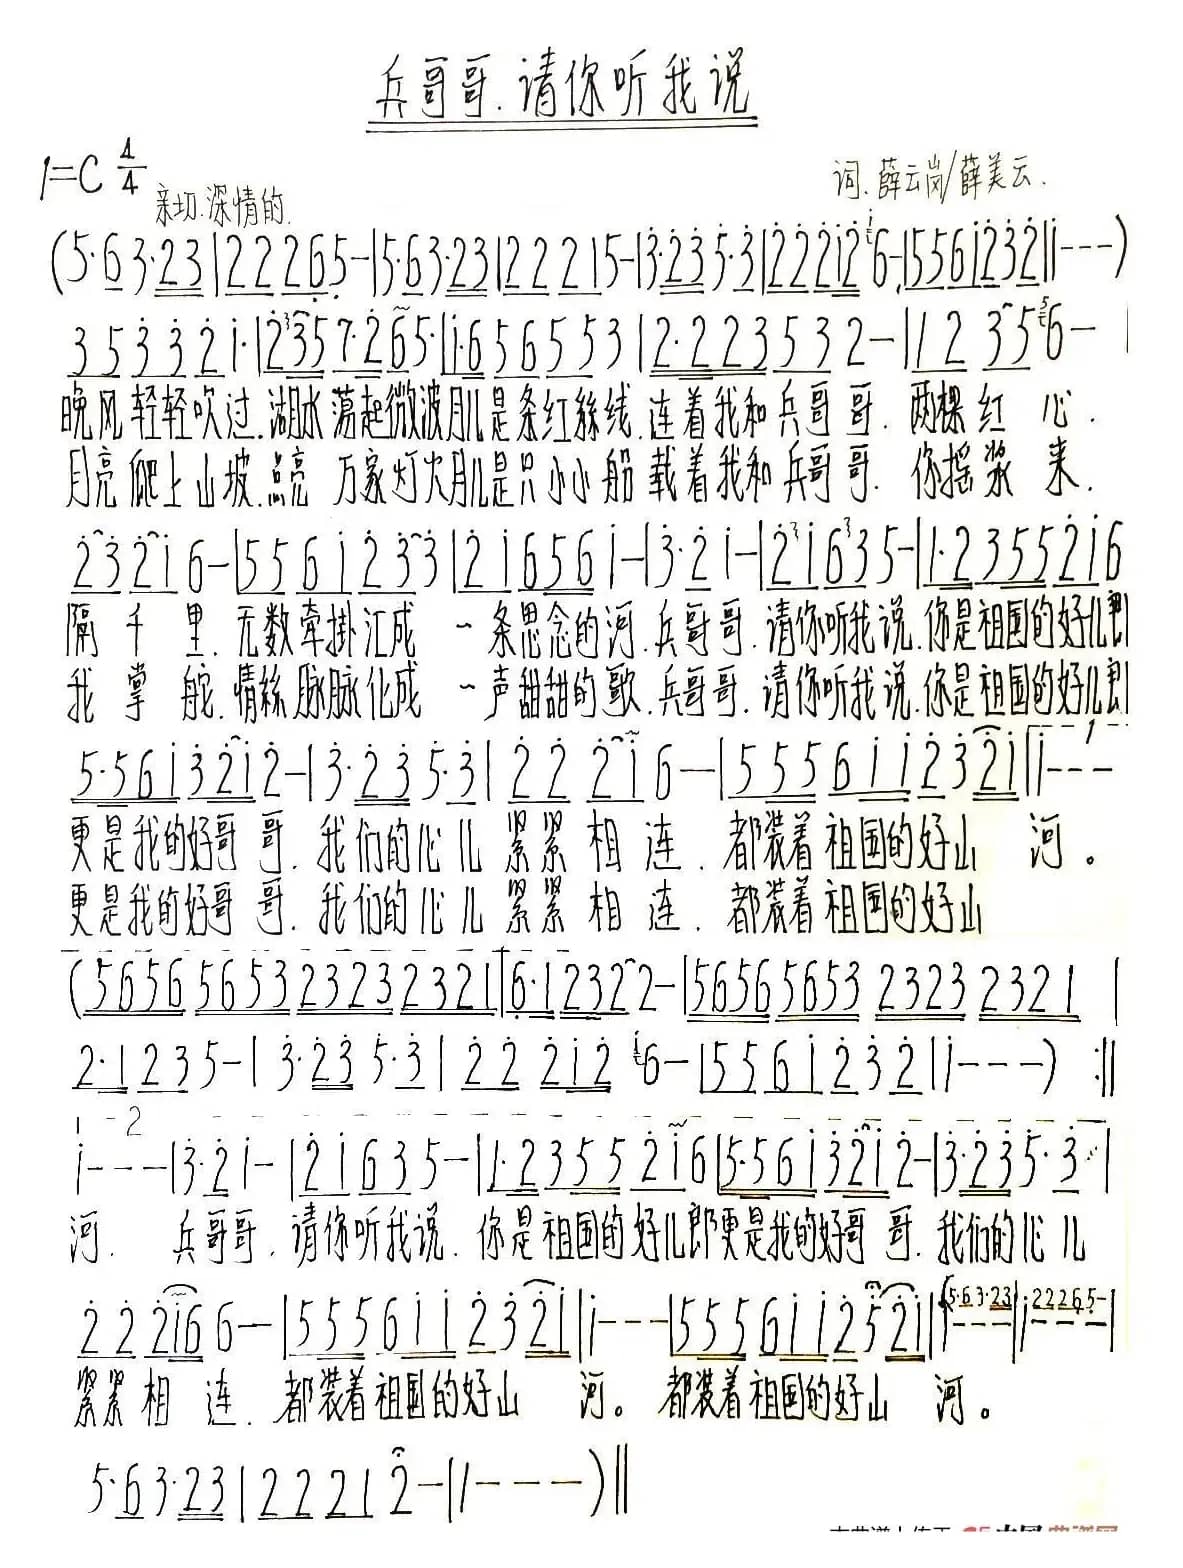 兵哥哥.请你听我说
1=C 4/4
亲切.深情的.
词.薛云岗/薛美云.
(5·63·23|22265-|5·63·23|22215-|3·235·3|222126-|556i232|i---)
353321·|2357·265·|i·656553|2·2223532-|12356-|
晚风轻轻吹过.湖水荡起微波月儿是条红丝线.连着我和兵哥哥.两棵红心.
月亮爬上山坡.点亮万家灯火月儿是只小小船载着我和兵哥哥.你摇浆来.
23216-|556i233|2i6565i-|3·2i-|2i635-|1·23552i6
隔千里.无数牵掛汇成一条思念的河.兵哥哥.请你听我说.你是祖国的好儿郎
我掌舵.情丝脉脉化成一声甜甜的歌.兵哥哥.请你听我说.你是祖国的好儿郎
5·56i32i2-|3·235·3|222i6-|5556ii2321||i---
更是我的好哥哥.我们的心儿紧紧相连.都装着祖国的好山河。
更是我的好哥哥.我们的心儿紧紧相连.都装着祖国的好山
(5656565323232321|6·12322-|5656565323232321|
2·1235-|3·235·3|222i26-|556i232|i---):||
i---|3·2i-|2i635-|1·23552i6|5·56i32i2-|3·235·3·|
河.兵哥哥.请你听我说.你是祖国的好儿郎更是我的好哥哥.我们的心儿
222i66-|5556ii232i||i---|5556ii252i||
紧紧相连.都装着祖国的好山河。都装着祖国的好山河。
5·63·23|22212-|1---)||